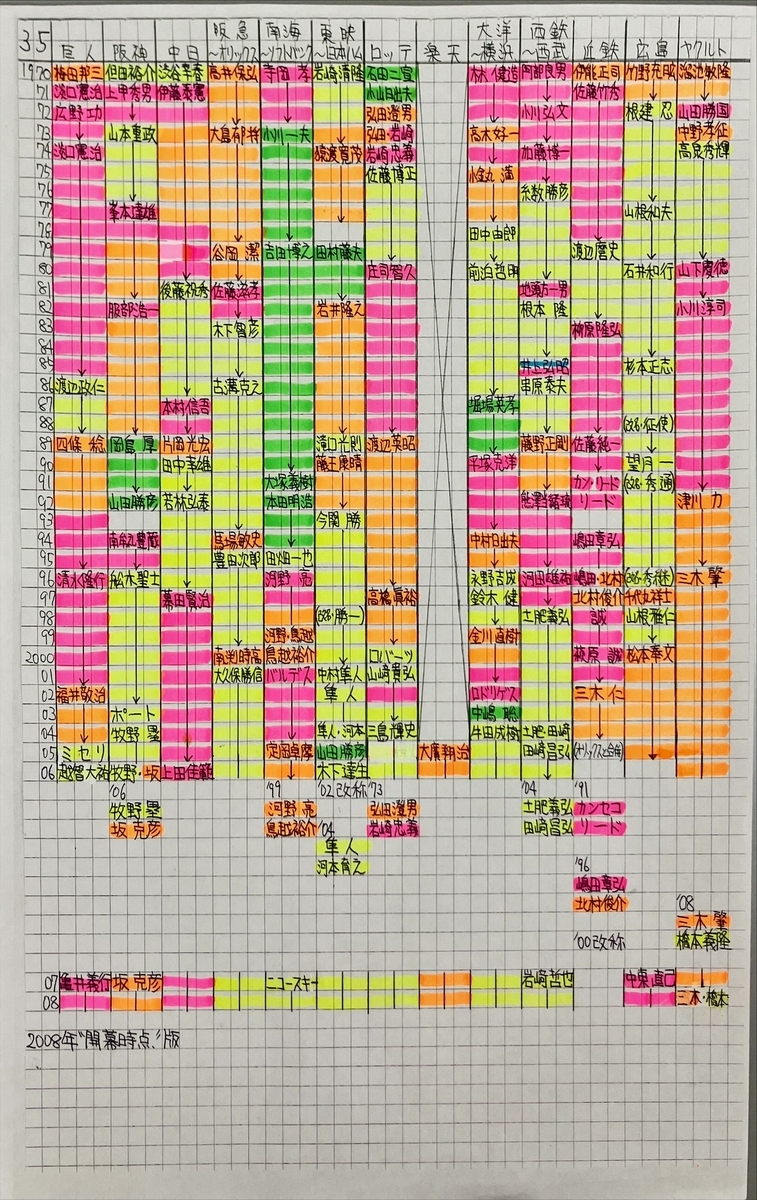 35 巨人 阪神 中日 阪急～オリックス 南海～ソフトバンク 東映～日本ハム ロッテ 楽天 大洋～横浜 西鉄～西武 近鉄 広島 ヤクルト
1970 梅田邦三 但田裕介 渋谷幸春 高井保弘 寺岡孝 岩崎清隆 石田二宣 林健造 阿部良男 伊能正司 竹野充昭 溜池敏隆
71 淡口憲治 上甲秀男 伊藤泰憲 小山日出夫 佐藤竹秀
72 広野功 弘田澄男 小川弘文 根建忍 山田勝国
73 山本重政 大島郁将 小川一夫 弘田・岩崎 高木好一 中野孝征
74 淡口憲治 猿渡寛茂 岩崎忠義 加藤博一 高泉秀輝
75 佐藤博正 小金丸満
76 糸数勝彦
77 峯本達雄 山根和夫
78 田中由郎
79 谷岡潔 吉田博之 田村藤夫 渡辺麿史
80 後藤祝秀 庄司智久 前泊哲明 石井和行 山下慶徳
81 佐藤滋孝 地頭方一男
82 服部浩一 岩井隆之 根本隆 小川淳司
83 木下智彦 柳原隆弘
84
85 井上弘昭 杉本正志
86 渡辺政仁 古溝克之 串原泰夫
87 本村信吾 堀場英孝
88 (628・征使)
89 四條稔 岡島厚 片岡光宏 滝口光則 渡辺英昭 藤野正剛 佐藤純一
90 田中幸雄 蔵王康晴 平塚克洋 望月一
91 大塚義樹 カン・リード (628・秀通)
92 山田勝彦 若林弘泰 本田明浩 熊澤当緒琉 リード 津川力
93 今関勝
94 南牟礼豊蔵 馬場敏史 中村日出夫 嶋田章弘
95 豊田次郎 田畑一也
96 清水隆行 舩木聖士 河野亮 永野吉成 河田雄祐 嶋田・北村 (628・秀継) 三木肇
97 幕田賢治 高橋眞裕 鈴木健 北村俊介 千代丸祥士
98 (628・勝一) 土肥義弘 誠 山根雅仁
99 河野・鳥越 金川直樹
2000 南渕時高 鳥越裕介 ロバーツ 萩原誠 松本奉文
01 大久保勝信 バルデス 中村隼人 山崎貴弘
02 福井敬治 隼人 ロドリゲス 三木仁
03 ポート 中嶋聡
04 牧野塁 隼人・河本 三島輝史 牛田成樹 土肥・田﨑
05 ミセリ 定岡卓摩 山田勝彦 大廣翔治 田﨑昌弘 (オリックスと合併)
06 越智大祐 牧野・坂 上田佳範 木下達生
'06 '99 '02改称 '73 '04 '91
牧野塁 河野亮 弘田澄男 土肥義弘 カンセコ
坂克彦 鳥越裕介 '04 岩崎忠義 田﨑昌弘 リード
隼人
河本育之 '96
嶋田章弘
北村俊介 '08
三木肇
'00改称 橋本義隆
07 亀井義行 坂克彦 ニコースキー 岩﨑哲也 中東直己
08 三木・橋本
2008年"開幕時点"版